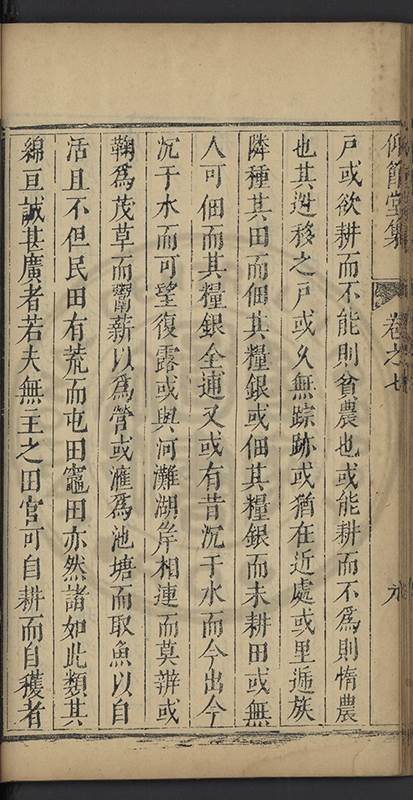 仰節堂集 卷之七
戸或欲耕而不能則貧農也或能耕而不爲則惰農
也其迯移之戸或久無踪跡或猶在近處或里逓族
隣種其田而佃其糧銀或佃其糧銀而未耕田或無
人可佃而其糧銀全逋又或有昔沉于水而今出今
沉于水而可望復露或與河灘湖岸相連而莫辨或
鞠爲茂草而鬻薪以爲營或滙爲池塘而取魚以自
活且不但民田有荒而屯田竈田亦然諸如此類其
綿亘誠甚廣者若夫無主之田官可自耕而自穫者